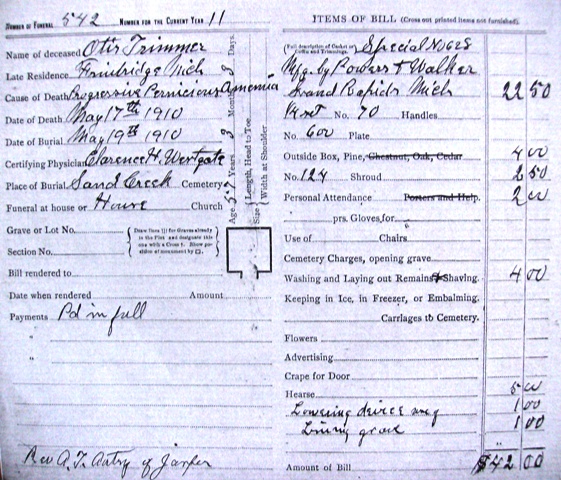 NUMBER OF FUNERAL 542 NUMBER FOR THE CURRENT YEAR 11
Name of deceased Otis Trimmer
Late Residence Mich
Cause of Death Progressive Pernicious Anemia
Date of Death May 17th 1910
Date of Burial May 19th 1910
Certifying Physician Clarence H. Westgate
Place of Burial Sand Creek Cemetery
Funeral at house or House Church
Grave or Lot No.
Section No.
Draw lines ||| for Graves already in the Plot and designate this one with a Cross †. Show position of monument by □.
Bill rendered to
Date when rendered Amount
Payments Pd in full
"
"
Rev A. T. of Jasper
Age 57 Years 3 Months 3 Days.
Size Length, Head to Toe.
Width at Shoulder
ITEMS OF BILL (Cross out printed items not furnished.)
(Full description of Casket or Coffin and Trimmings.) Special No 628
Mfg. by Powers & Walker
Grand Rapids Mich 22 50
No. 70 Handles
No. 600 Plate
Outside Box, Pine, Chestnut, Oak, Cedar 4 00
No. 124 Shroud 2 50
Personal Attendance Porters and Help. 2 00
prs. Gloves for
Use of Chairs
Cemetery Charges, opening grave
Washing and Laying out Remains & Shaving. 4 00
Keeping in Ice, in Freezer, or Embalming.
Carriages to Cemetery.
Flowers
Advertising
Crape for Door
Hearse 5 00
Lowering device 1 00
Lining grave 1 00
"
Amount of Bill $42 00